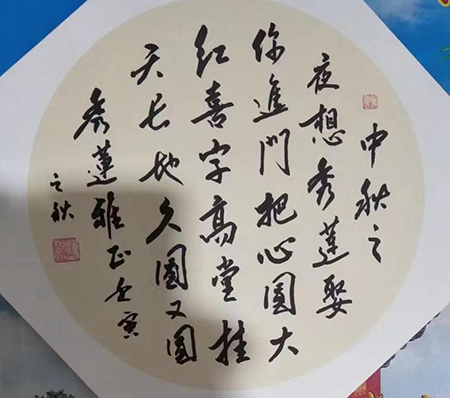 中秋之
夜想秀莲娶
你进门把心圆大
红喜字高堂挂
天长地久圆又圆
秀莲雅正壬寅
之秋